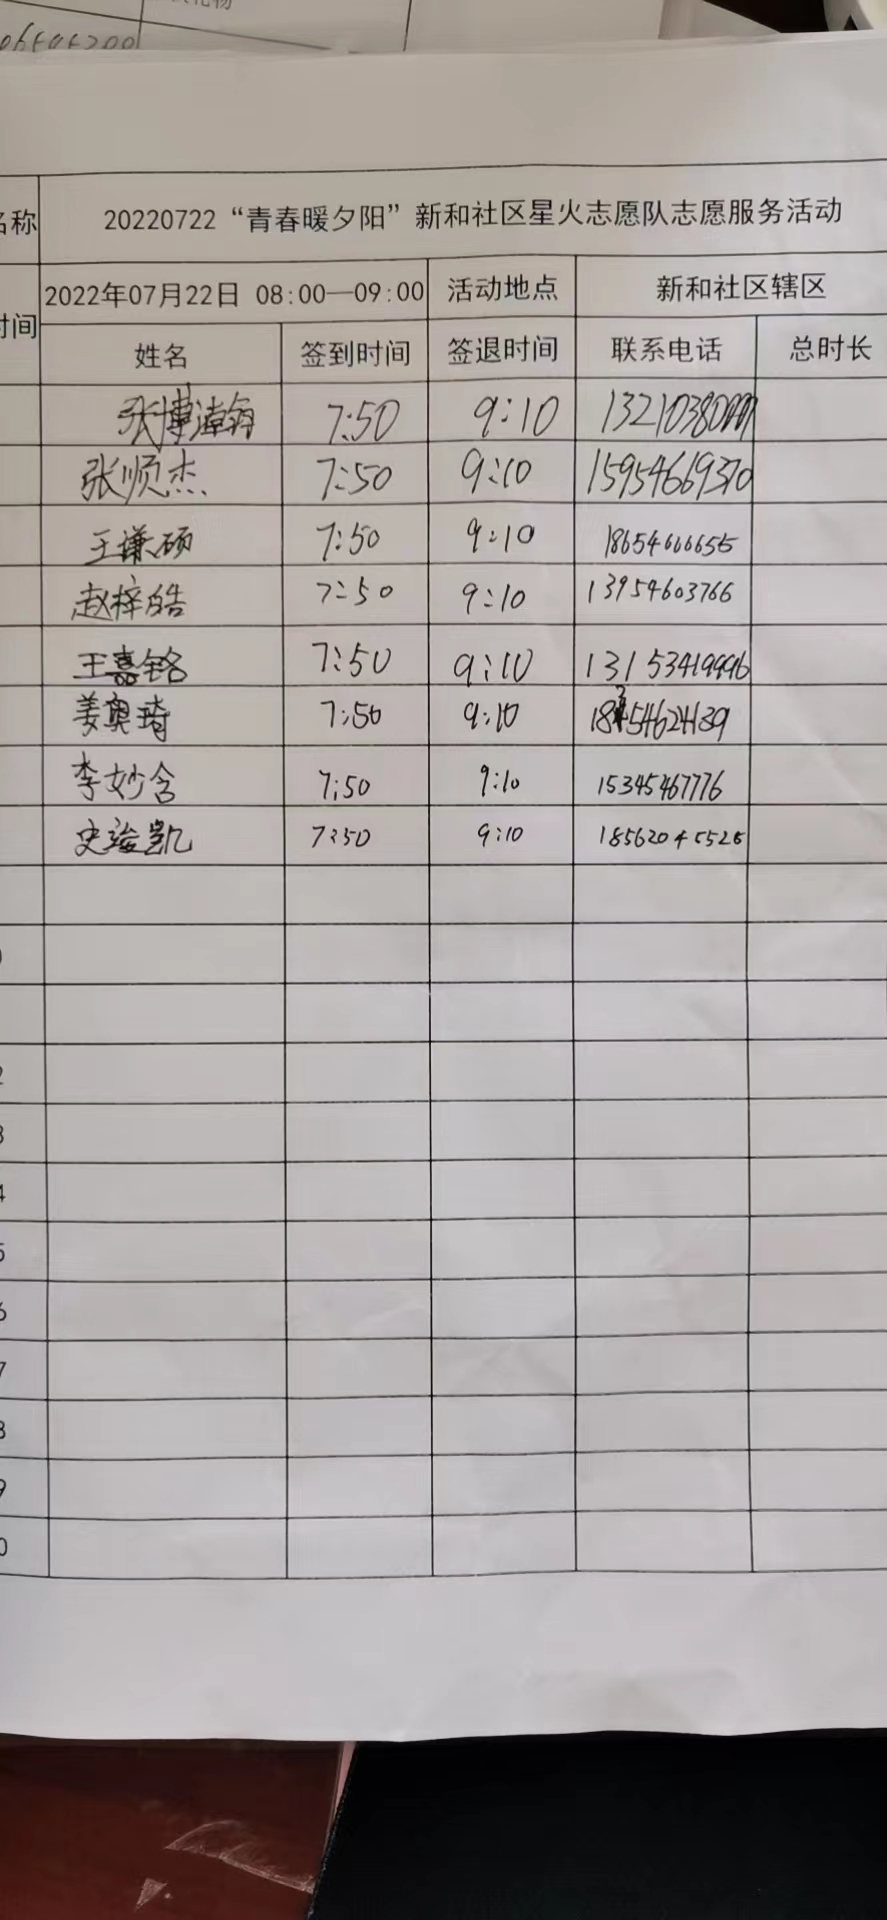 名称 20220722“青春暖夕阳”新和社区星火志愿队志愿服务活动
时间 2022年07月22日 08:00—09:00 活动地点 新和社区辖区
姓名 签到时间 签退时间 联系电话 总时长
7:50 9:10
张顺杰 7:50 9:10 15954669370
王谦硕 7:50 9:10 18654666655
赵梓皓 7:50 9:10 13954603766
王嘉铭 7:50 9:10
姜奥琦 7:50 9:10
李妙含 7:50 9:10 15345467776
史竣凯 7:50 9:10 18562045526
2
3
4
5
6
7
8
9
0